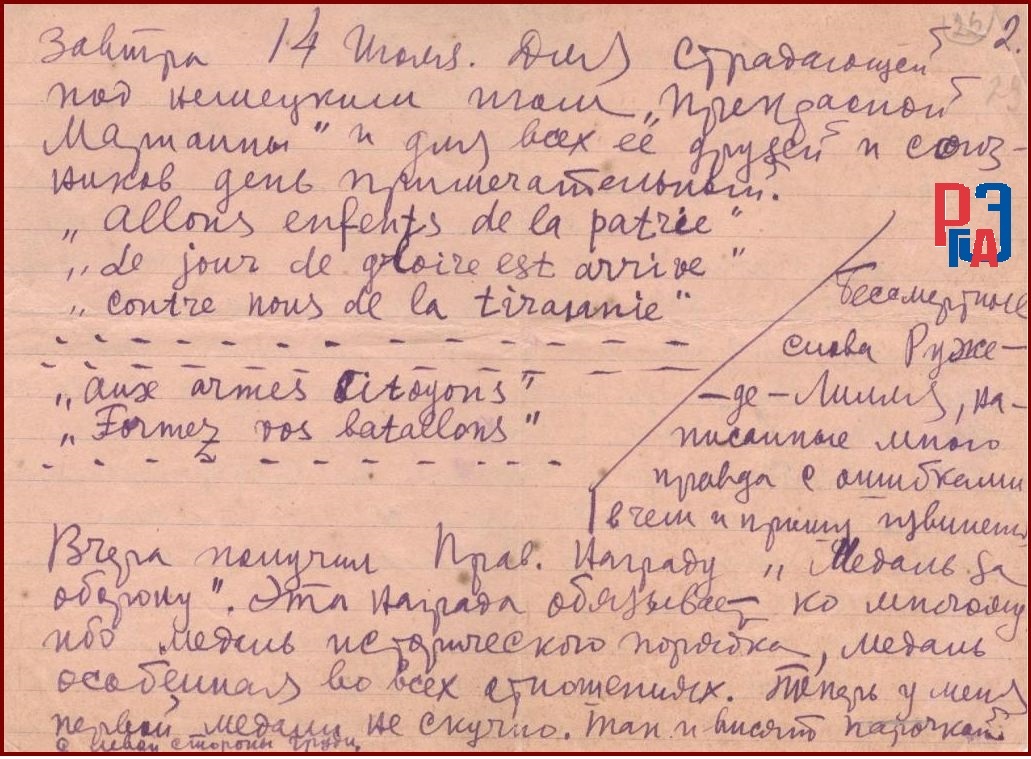 2.
Завтра 14 Июля. Для страдающей
под немецким игом „Прекрасной
Марианны" и для всех её друзей и союз-
ников день примечательный.
„Allons enfents de la patrie"
„Le jour de gloire est arrive"
„contre nous de la tirannie"
„aux armes citoyons"
„Formez vos bataillons"
Бессмертные
слова Руже-
-де-Лилля, на-
писанные мною
правда с ошибками
в чем и прошу извинения
Вчера получил Прав. Награду „Медаль за
оборону". Эта награда обязывает ко многому
ибо медаль исторического порядка, медаль
особенная во всех отношениях. Теперь у меня
первой медали не скучно. Так и висят парочкой
с левой стороны груди
РГАЭ